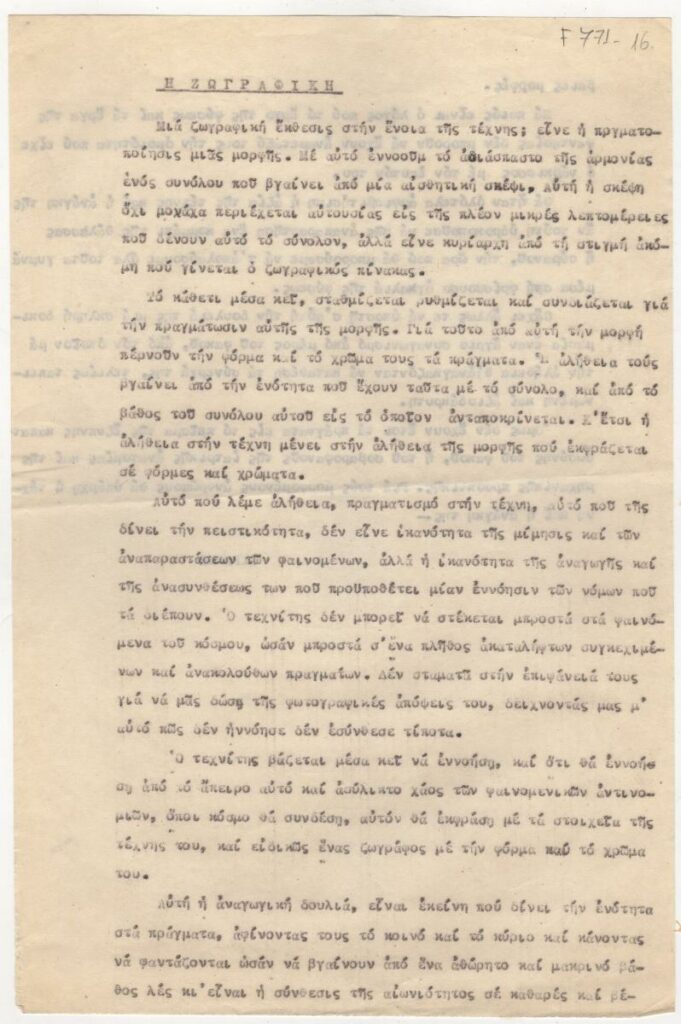 F 771- 16.
Η ΖΩΓΡΑΦΙΚΗ
Μιά ζωγραφική ἔκθεσις στήν ἔνοια τῆς τέχνης; εἶνε ἡ πργματο-
ποίησις μιᾶς μορφῆς. Μέ αὐτό ἐννοοῦμ τό ἀδιάσπαστο τῆς ἁρμονίας
ἑνός συνόλου πού βγαίνει ἀπό μία αἰσθητική σκέψι, Αὐτή ἡ σκέψη
ὄχι μοχάχα περιέχεται αὐτουσία εἰς τῆς πλέον μικρές λεπτομέρειες
πού δένουν αὐτό τό σύνολον, ἀλλά εἶνε κυρίαρχη ἀπό τή στιγμή ἀκό-
μη πού γίνεται ὁ ζωγραφικός πίνακας.
Τό κάθετι μέσα κεῖ, σταθμίζεται ρυθμίζεται καί συνοιάζεται γιά
τήν πραγμάτωσιν αὐτῆς τῆς μορφῆς. Γιά τοῦτο ἀπό αὐτή τήν μορφή
πέρνουν τήν φόρμα καί τό χρῶμα τους τά πράγματα. Ἡ ἀλήθεια τούς
βγαίνει ἀπό τήν ἑνότητα πού ἔχουν ταῦτα μέ τό σύνολο, καί ἀπό τό
βάθος τοῦ συνόλου αὐτοῦ εἰς τό ὁποῖον ἀνταποκρίνεται. Κ'ἔτσι ἡ
ἀλήθεια στήν τέχνη μένει στήν ἀλήθεια τῆς μορφῆς πού ἐκφράζεται
σέ φόρμες καί χρώματα.
Αὐτό πού λέμε ἀλήθεια, πραγματισμό στήν τέχνη, αὐτό πού τῆς
δίνει τήν πειστικότητα, δέν εἶνε ἱκανότητα τῆς μίμησις καί τῶν
ἀναπαραστάσεων τῶν φαινομένων, ἀλλά ἡ ἱκανότητα τῆς ἀναγωγῆς καί
τῆς ἀνασυνθέσεως των πού προϋποθέτει μίαν ἐννόησιν τῶν νόμων πού
τά διέπουν. Ὁ τεχνίτης δέν μπορεῖ νά στέκεται μπροστά στά φαινό-
μενα τοῦ κόσμου, ὡσάν μπροστά σ'ἕνα πλῆθος ἀκαταλήπτων συγκεχιμέ-
νων καί ἀνακολούθων πραγμάτων. Δέν σταματᾶ στήν ἐπιφάνειά τους
γιά νά μᾶς δώσῃ τῆς φωτογραφικές ἀπόψεις του, δείχνοντάς μας μ'
αὐτό πῶς δέν ἠννόησε δέν ἐσύνθεσε τίποτα.
Ὁ τεχνίτης βάζεται μέσα κεῖ νά ἐννοήσῃ, καί ὅτι θά ἐννοή-
ση ἀπό τό ἄπειρο αὐτό καί ἀσύλικτο χάος τῶν φαινομενικῶν ἀντινο-
μιῶν, ὅποι κόσμο θά συνδέσῃ, αὐτόν θά ἐκφράσῃ μέ τά στοιχεῖα τῆς
τέχνης του, καί εἰδικῶς ἕνας ζωγράφος μέ τήν φόρμα καί τό χρῶμα
του.
Αὐτή ἡ ἀναγωγική δουλιά, εἶναι ἐκείνη πού δίνει τήν ἑνότητα
στά πράγματα, ἀφίνοντας τους τό κοινό καί τό κύριο καί κάνοντας
νά φαντάζονται ὡσάν νά βγαίνουν ἀπό ἕνα ἀθώρητο καί μακρινό βά-
θος λές κι'εἶναι ἡ σύνθεσις τῆς αἰωνιότητος σέ καθαρές καί βέ-